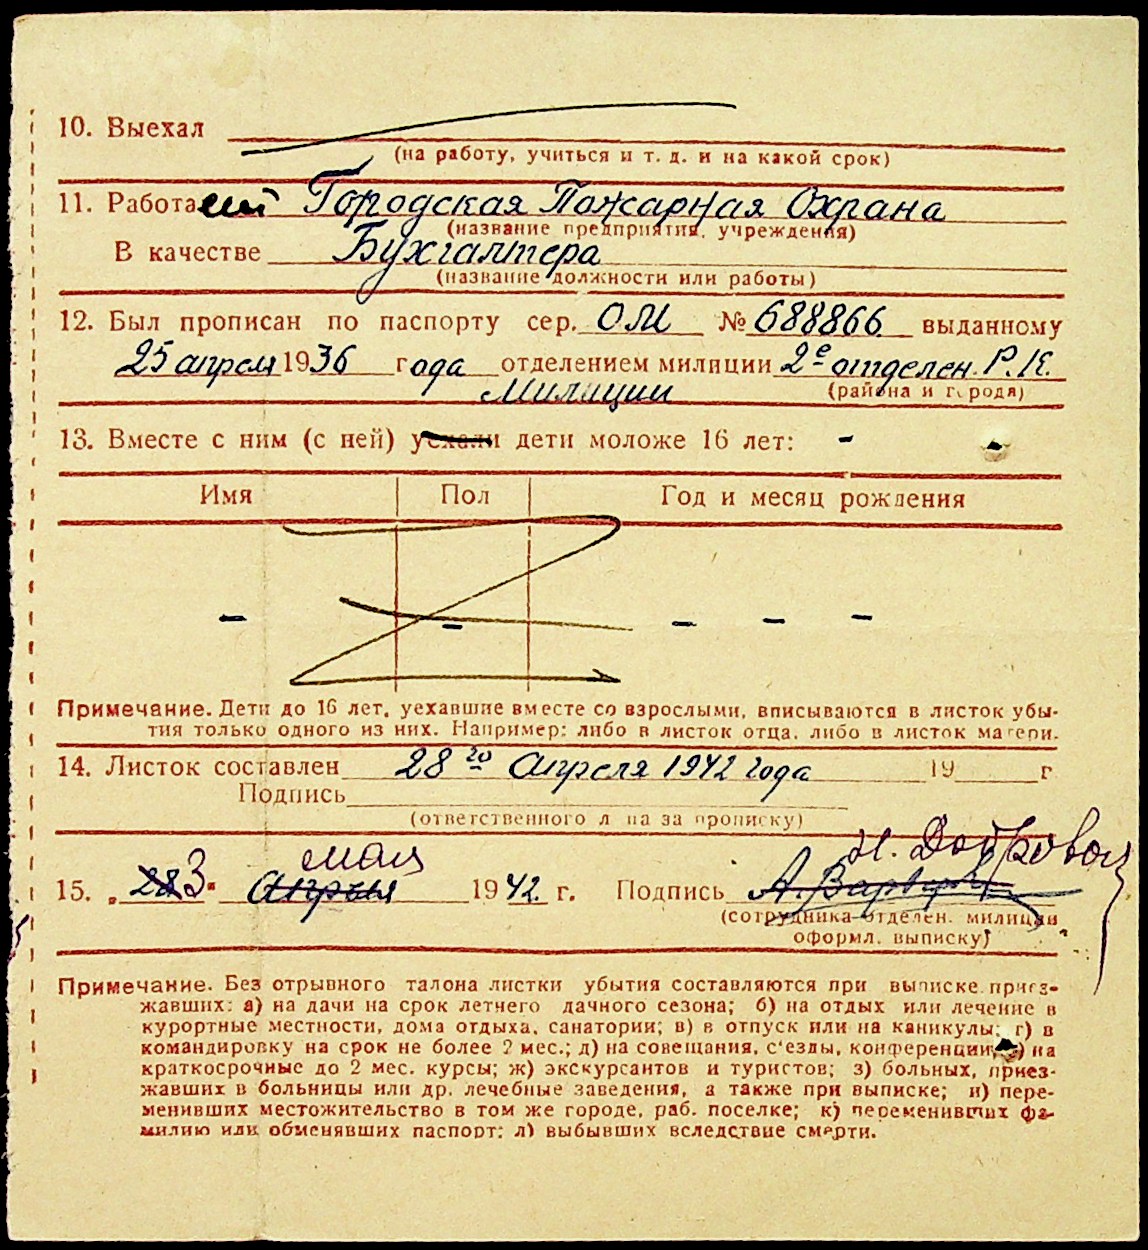 10. Выехал
(на работу, учиться и т. д. и на какой срок)
11. Работа Городская Пожарная Охрана
(название предприятия, учреждения)
В качестве Бухгалтера
(название должности или работы)
12. Был прописан по паспорту сер. ОМ № 688866 выданному
25 апреля 1936 года отделением милиции 2е отделен. Р.К.
Милиции (района и города)
13. Вместе с ним (с ней) уехали дети моложе 16 лет: -
Имя Пол Год и месяц рождения
- - - - -
Примечание. Дети до 16 лет, уехавшие вместе со взрослыми, вписываются в листок убы-
тия только одного из них. Например: либо в листок отца, либо в листок матери.
14. Листок составлен 28го Апреля 1942 года 19 г
Подпись
(ответственного лица за прописку)
мая
15. „ 28 3. апреля 1942 г. Подпись
(сотрудника отделен. милиции
оформл. выписку)
Примечание. Без отрывного талона листки убытия составляются при выписке приез-
жавших: а) на дачи на срок летнего дачного сезона; б) на отдых или лечение в
курортные местности, дома отдыха, санатории; в) в отпуск или на каникулы; г) в
командировку на срок не более 2 мес.; д) на совещания, с'езды, конференции; на
краткосрочные до 2 мес. курсы; ж) экскурсантов и туристов; з) больных, приез-
жавших в больницы или др. лечебные заведения, а также при выписке; и) пере-
менивших местожительство в том же городе, раб. поселке; к) переменивших фа-
милию или обменявших паспорт; л) выбывших вследствие смерти.